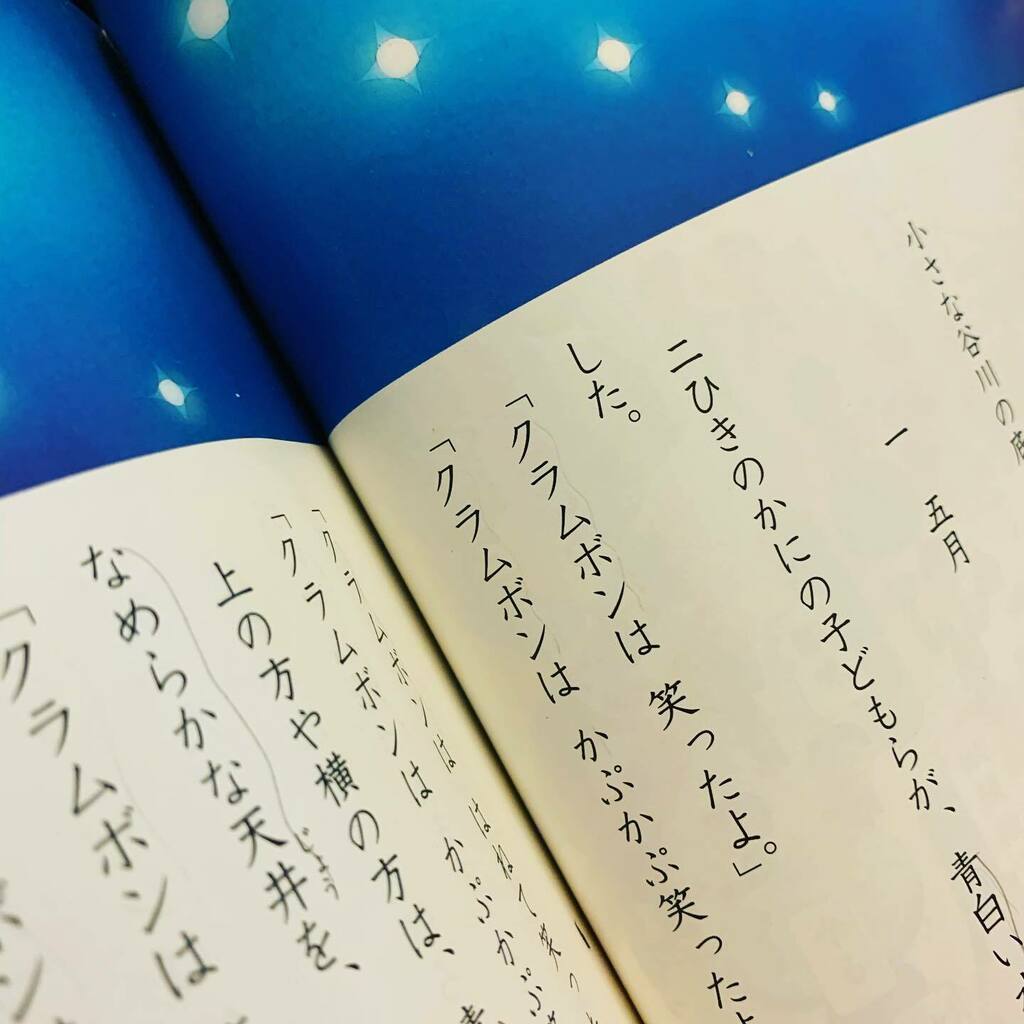 小さな谷川の底
一 五月
二ひきのかにの子どもらが、 青白い
した。
「クラムボンは 笑ったよ。」
「クラムボンは かぷかぷ笑ったよ
「クラムボンは はねて笑っ
「クラムボンは かぷかぷ
上の方や横の方は、 青
なめらかな天井を、
じょう
「クラムボンは